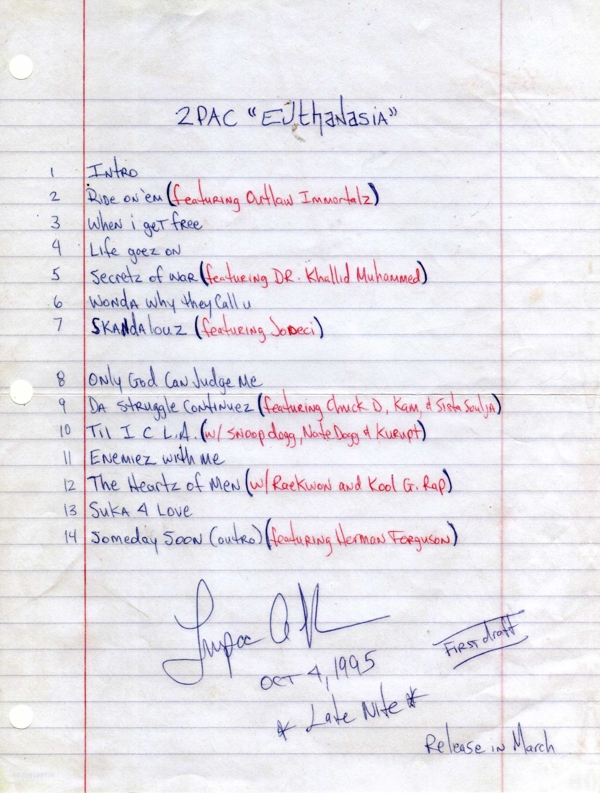 2PAC "EUthanasia"
1 Intro
2 Ride on 'em (featuring Outlaw Immortalz)
3 When i get free
4 Life goez on
5 Secretz of war (featuring DR. Khallid Muhammed)
6 Wonda why they Call u
7 Skandalouz (featuring Jodeci)
8 Only God Can Judge Me
9 Da struggle Continuez (featuring Chuck D, Kam, & Sista Soulja)
10 Til I C L.A. (w/ snoop dogg, Nate Dogg & Kurupt)
11 Enemiez with me
12 The Heartz of Men (w/ Raekwon and Kool G. Rap)
13 Suka 4 Love
14 Someday Soon (outro) (featuring Herman Ferguson)
First draft
Oct 4, 1995
* Late Nite *
Release in March